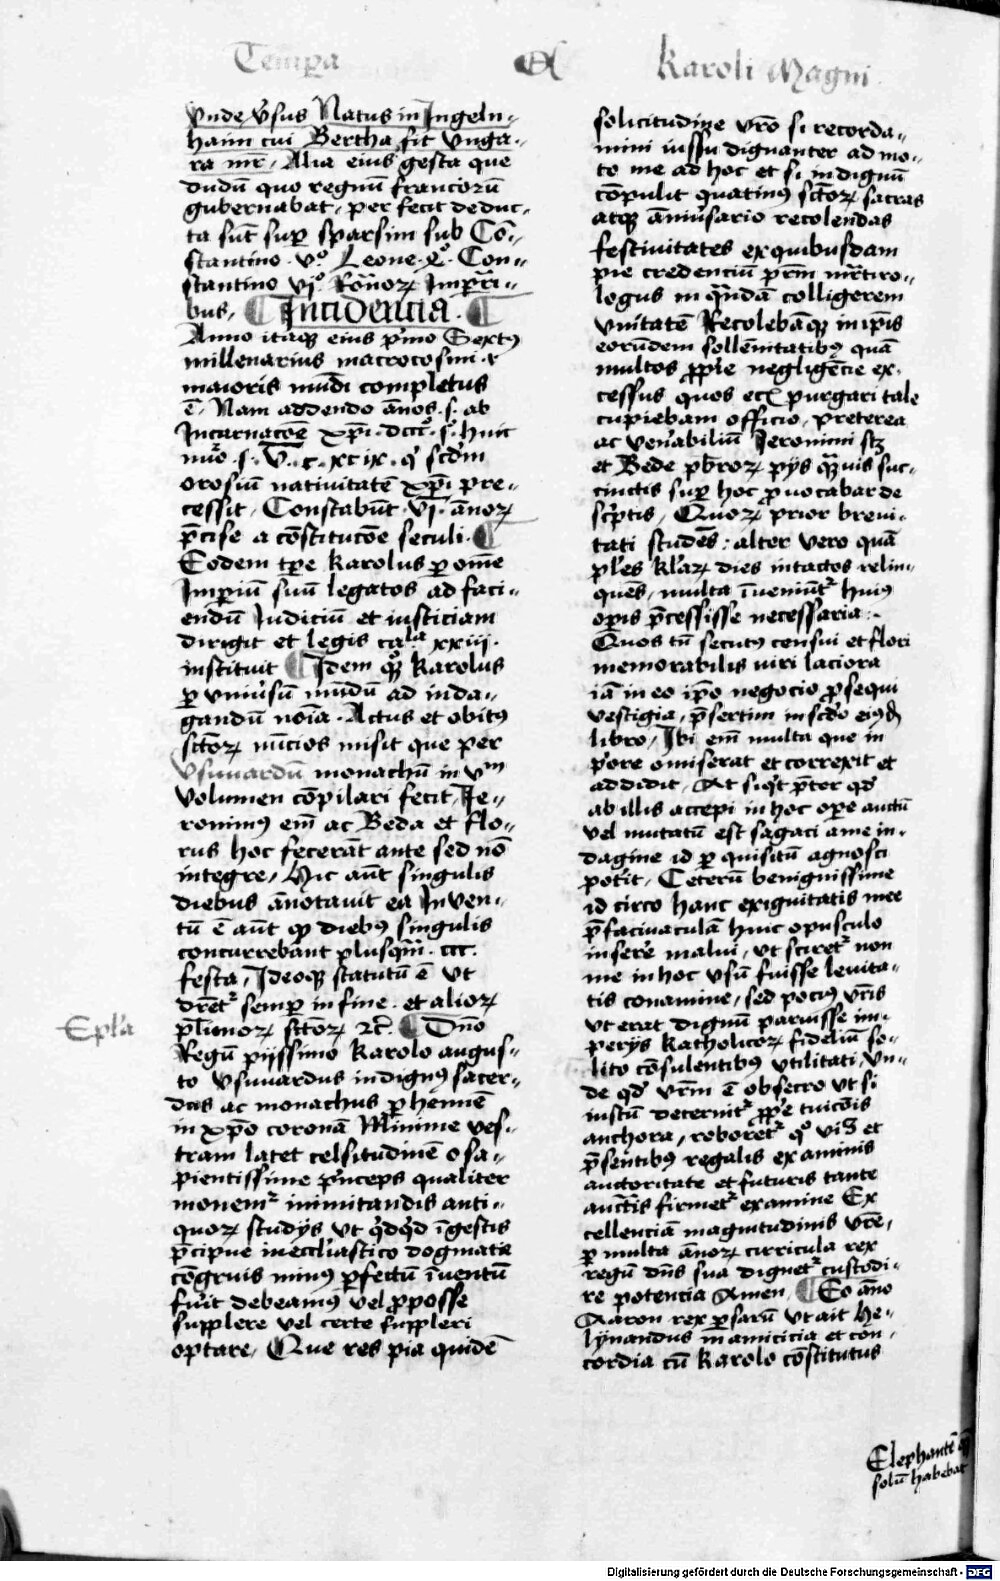 Tempa
Karoli Magni
Vnde v̄sus Natus in Ingeln-
haim cui Bertha fit Vnga-
ra mr̄. Alia eius gesta que
dudū quo regnū francorū
gubernabat, per fecit deduc-
ta sūt sup̲ sparsim sub Cō-
stantino . vͦ. Leone . Con-
stantino vjͦ. Rōnoꝝ Imp̲ri-
bus, ¶ Incidencia . ¶
Anno itaqꝫ eius p̄mo Sextꝰ
millenarius macrocosmi .
maioris mūdi completus
ē, Nam addendo ānos .s. ab
Incarnacōē xp̄i . dccͦ. s. huic
nūo .s. v̄. c. xcix. qͥ scd̄m
orosiū nativitatē xp̄i pre-
cessit, Constabūt vj̄. ānoꝝ
p̄cise a cōstitucōe seculi . ¶
Eodem tp̄re Karolus p̲ om̄e
Imp̲iū suū legatos ad faci-
endū Judiciū et iusticiam
dirigit et legis ca̲la xxiij.
instituit ¶ Idem qͦꝫ Karolus
p̲ vniūsū mūdū ad inda-
gandū noīa . Actus et obitꝰ
sctōꝝ nūcios misit que per
Vsuuardū monachū in vᵐ
volumen cōpilari fecit, Je-
ronimꝰ em̄ ac Beda et flo-
rus hoc fecerāt ante sed nō
integre, Hic aūt singulis
diebus ānotauit ea Inven-
tū ē aūt qꝫ diebꝰ singulis
concurrebant plusqͣm . ccc.
festa, Ideoqꝫ statutū ē vt
dr̄etᷣ semp̲ in fine . et alioꝝ
p̲limoꝝ sctōꝝ ꝛc̄. ¶ Dn̄o
Ep̄la
Regū pijssimo Karolo augus-
to vsuuardus indignꝰ sacer-
dos ac monachus p̲hennē
in xp̄o coronā Minime ves-
tram latet celsitudinē o sa-
pientissime p̄nceps qualiter
monemᷣ inimitandis anti-
quoꝝ studijs vt qͥdqͥd ī gestis
p̄cipue in eccl̄iastico dogmatia
cōgruis minꝰ p̲fectū īuentū
fu̅it debeamꝰ vel p̲posse
supplere vel certe suppleri
optare, Que res pia quidē
solicitudine vr̄o si recorda-
mini iussu dignanter ad mo-
to me ad hoc et si indignū
cōpulit quatinꝰ sctōꝝ sacras
atqꝫ āniūsario recolendas
festivitates ex quibusdam
pie credenciū p̄rm mr̄tiro-
logus in qͣndā colligerem
vnitatē Recolebāqꝫ in ip̄is
eorūdem sollēnitatibꝰ quā
multos p̲p̄ie negligēcie ex-
cessus quos purgari tale
cupiebam officio, preterea
ac ven̄abiliū Jeronimi sꝫ
et Bede pb̄roꝝ pijs qͣuis suc-
cinctis sup̲ hoc p̲uocabar de
sc̄ptis, Quoꝝ prior brevi-
tati studēs: alter vero quā
pl̄es kl̄aꝝ dies intactos relin-
quēs, multa īueniūtᷣ huiꝰ
op̲is p̄cessisse necessaria :.
Quos tn̄ secutꝰ censui et flori
memorabilis viri laciora
iā in eo ip̄o negocio p̲sequi
vestigia, p̄sertim in scd̄o eiꝰd̄
libro, Ibi em̄ multa que in
p̄ore omiserat et correxit et
addidit, At siqͥt p̄ter qd̄
ab illis accepi in hoc op̲e auctū
vel mutatū est sagaci a me in-
dagine id p̲ quisitū agnosci
potit, Ceterū benignissime
id circo hanc exiguitatis mee
p̄faciuaculam huic opusculo
inser̄e malui, vt sciretᷣ non
me in hoc vsū fuisse leuita-
tis conamine, sed pociꝰ vr̄is
vt erat dignū paruisse im-
perijs Katholicoꝝ fideliū so-
lito cōsulentibꝰ vtilitati, Vn-
de qd̄ vr̄m ē obsecro vt si
iustū decernitᷣ p̲p̄e tuicōis
anchora, roboretᷣ qͦ et
p̄sentibꝰ regalis examinis
auctoritate et futuris tante
auctīs firmetᷣ examine Ex
cellenciā magnitudinis vr̄e,
p̲ multa ānoꝝ curricula rex
regū dn̄s sua dignetᷣ custodi-
re potencia Amen. ¶ Eo āno
Aaron rex p̲sarū vt ait he-
lynandus in amicicia et con-
cordia cū Karolo cōstitutus
Elephantē qͫ
solū habebat
Digitalisierung gefördert durch die Deutsche Forschungsgemeinschaft - DFG